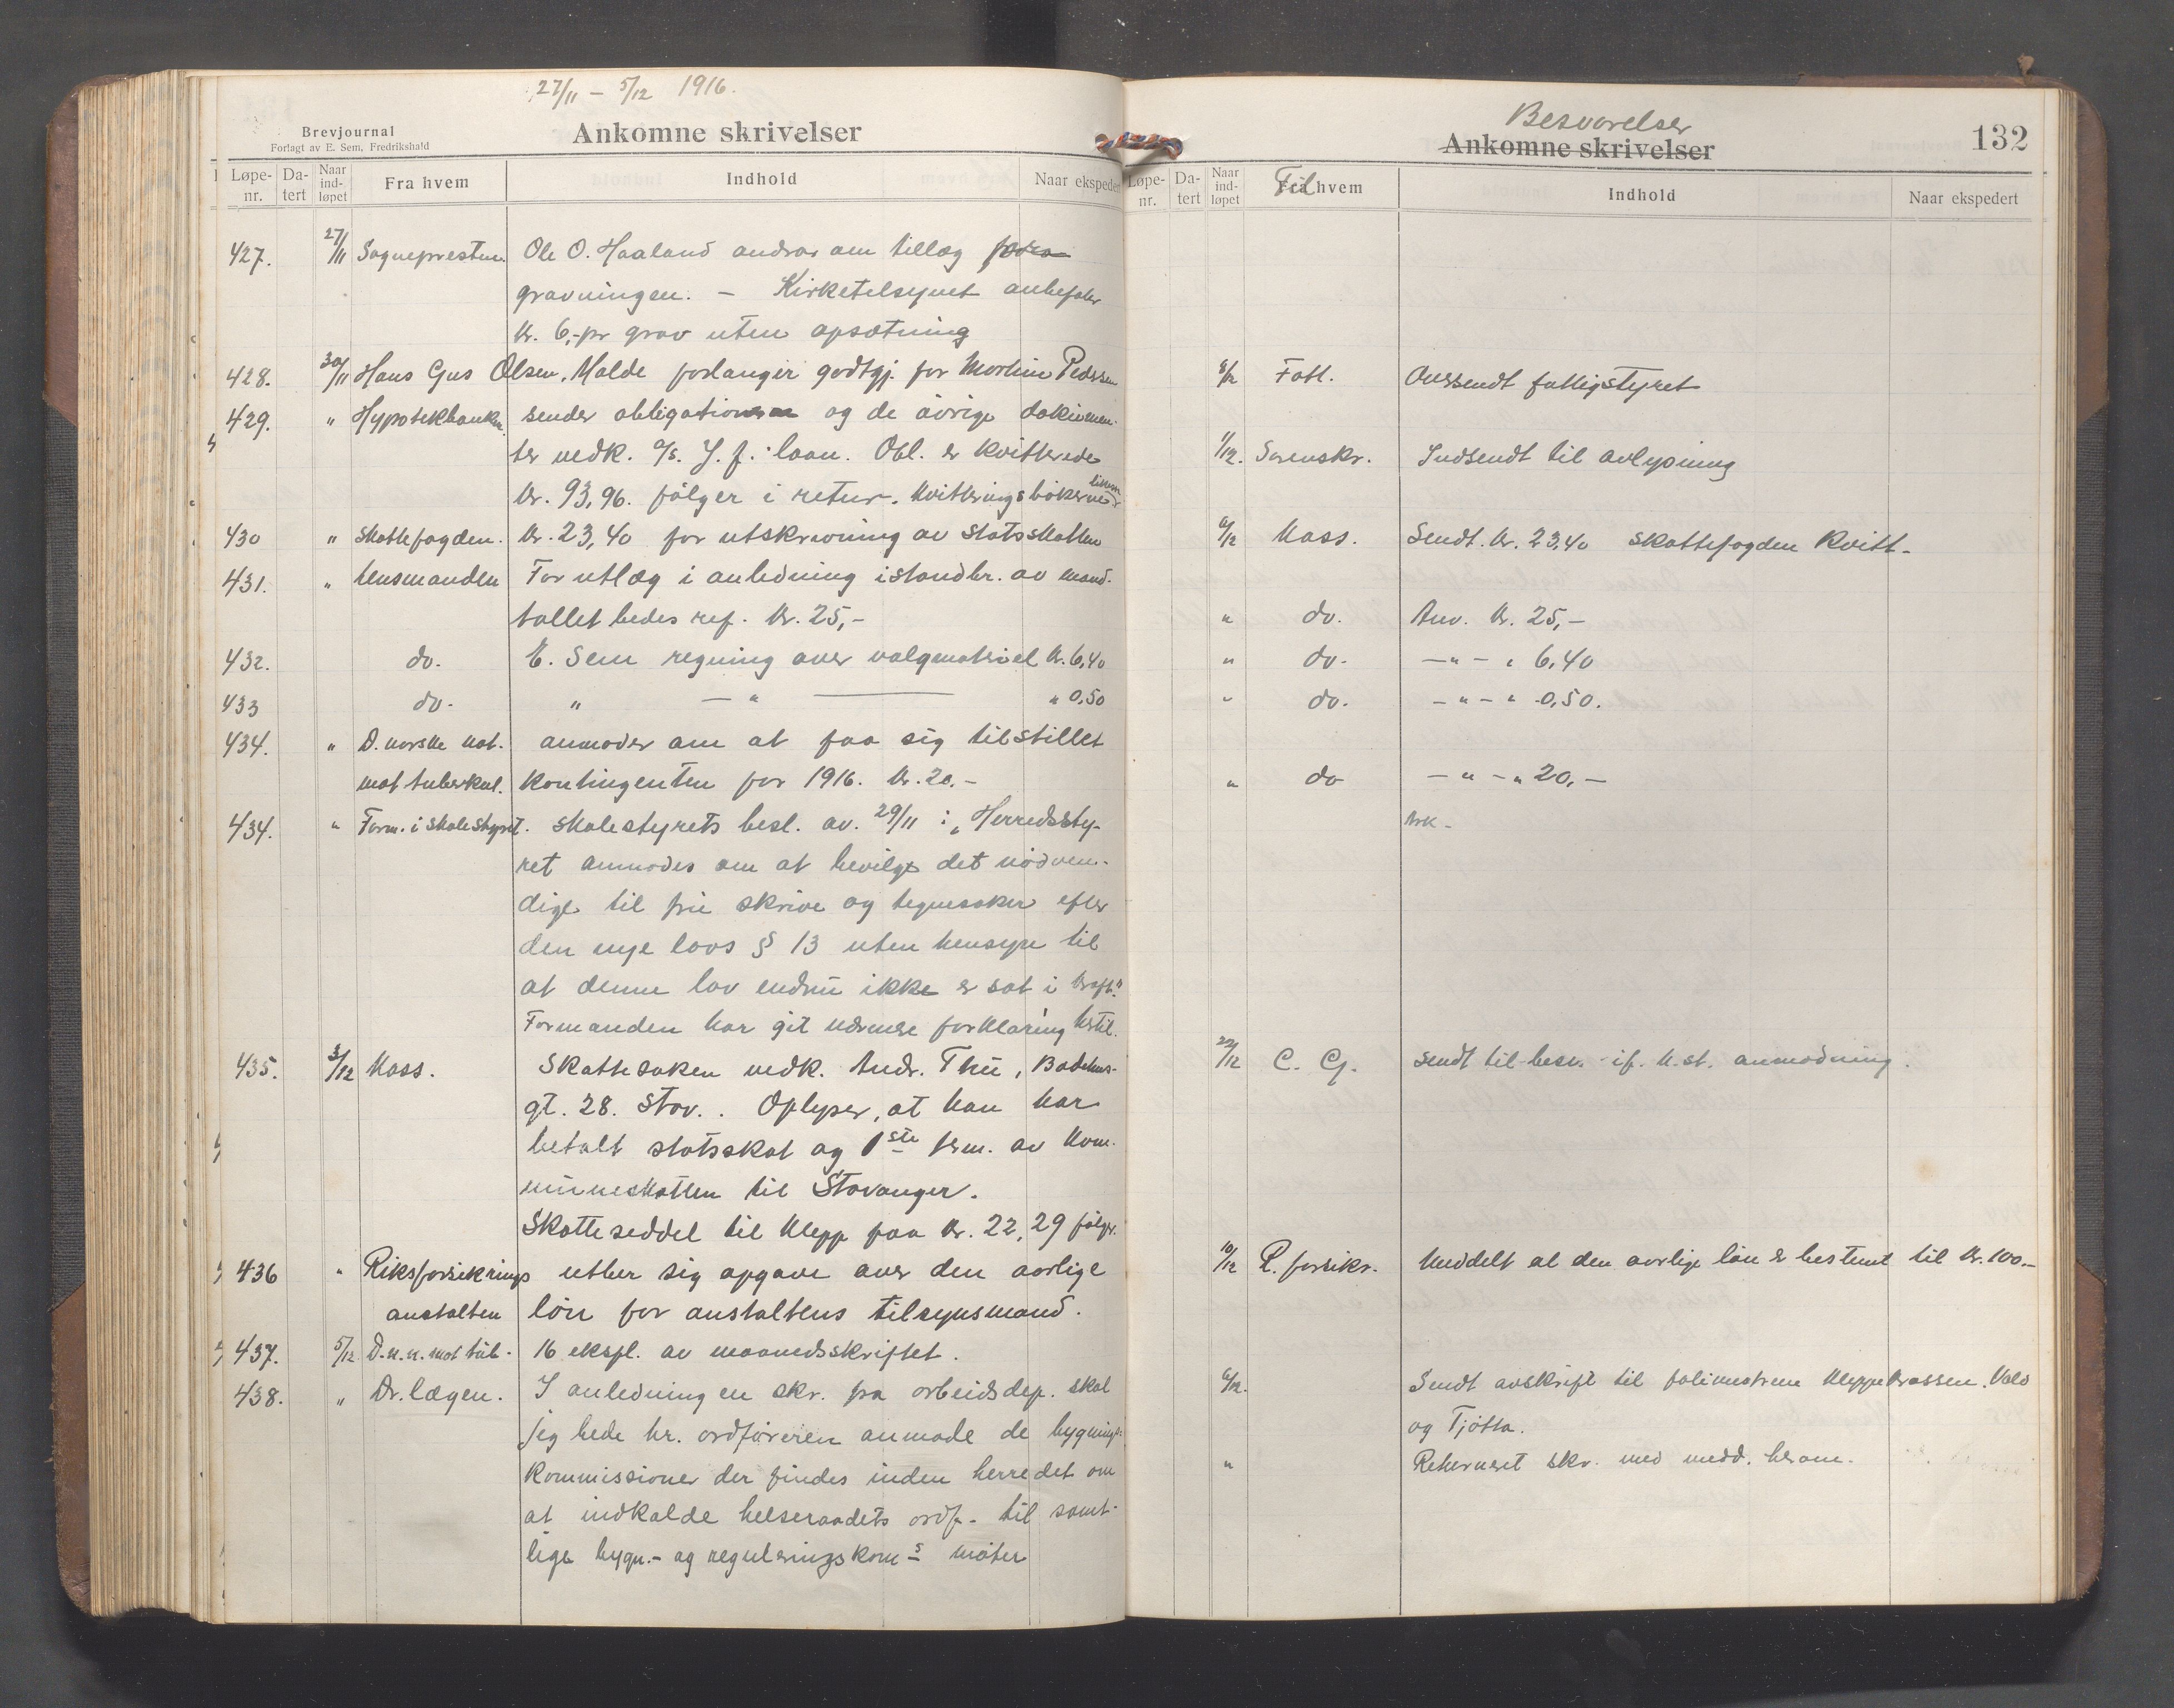 27/11 – 5/12 1916.
Brevjournal
Forlagt av E. Sem, Fredrikshald
Ankomne skrivelser
Løpe-nr. Da-tert Naar ind-løpet Fra hvem Indhold Naar ekspedert
427. 27/11 Sognepresten. Ole O. Haaland andrar om tillæg
gravningen. – Kirketilsynet anbefaler
kr. 6,- pr grav uten opsætning
428. 30/11 Hans Gus Olsen, Malde forlanger godtgj. for Martin Pedersen
429. " Hypotekbanken. sender obligationen og de øvrige dokumen-
ter vedk. J. f. laan. Obl. er kvitterede
kr. 93,96. følger i retur. Kvitteringsbøkerne
430 " Skattefogden. kr. 23,40 for utskrivning av statsskatten
431. " Lensmanden For utlæg i anledning istandbr. av mand-
tallet bedes ref. kr. 25,-
432. do. E. Sem regning over valgmateriel kr. 6,40
433 do. " — " — " 0,50
434. " D. norske nat. anmoder om at faa sig tilstillet
mot tuberkul. kontingenten for 1916. kr. 20.-
434. " Form. i skolestyret. Skolestyrets besl. av. 29/11 : „Herredssty-
ret anmodes om at bevilge det nødven-
dige til frie skrive og tegnesaker efter
den nye lovs § 13 uten hensyn til
at denne lov endnu ikke er sat i kraft."
Formanden har git nærmere forklaring hertil.
435. 3/12 Kass. Skattesaken vedk. Andr. Thu, Badehus-
gt. 28. Stav.. Oplyser, at han har
betalt statsskat og 1ste term. av kom-
muneskatten til Stavanger.
Skatteseddel til Klepp paa kr. 22,29 følger.
436 " Riksforsikrings utber sig opgave over den aarlige
anstalten løn for anstaltens tilsynsmand.
437. 5/12 D.n.n. mot tub. 16 ekspl. av maanedsskriftet.
438. " Dr. lægen. I anledning en skr. fra arbeidsdep. skal
jeg bede hr. ordføreren anmode de bygnings-
kommissioner der findes inden herredet om
at indkalde helseraadets ordf. til samt-
lige bygn.- og reguleringskoms møter
Besvarelser
Ankomne skrivelser
132
Løpe-nr. Da-tert Naar ind-løpet Til hvem Indhold Naar ekspedert
8/12 Fatt. Oversendt fattigstyret
1/12. Sorenskr. Indsendt til avlysning
6/12 Kass. Sendt. kr. 23,40 skattefogden Kvitt-
" do. Anv. kr. 25,-
" do. — " — " 6,40
" do. — " — " 0,50.
" do — " — " 20,-
Ark-
22/12 C. G. sendt til besv. if. u.st. anmodning.
10/12 R. forsikr. Meddelt at den aarlige løn er bestemt til kr. 100.–
6/12. Sendt avskrift til Kleppekrossen. Vold
og Tjøtta.
" Returneret skr. med medd. herom.